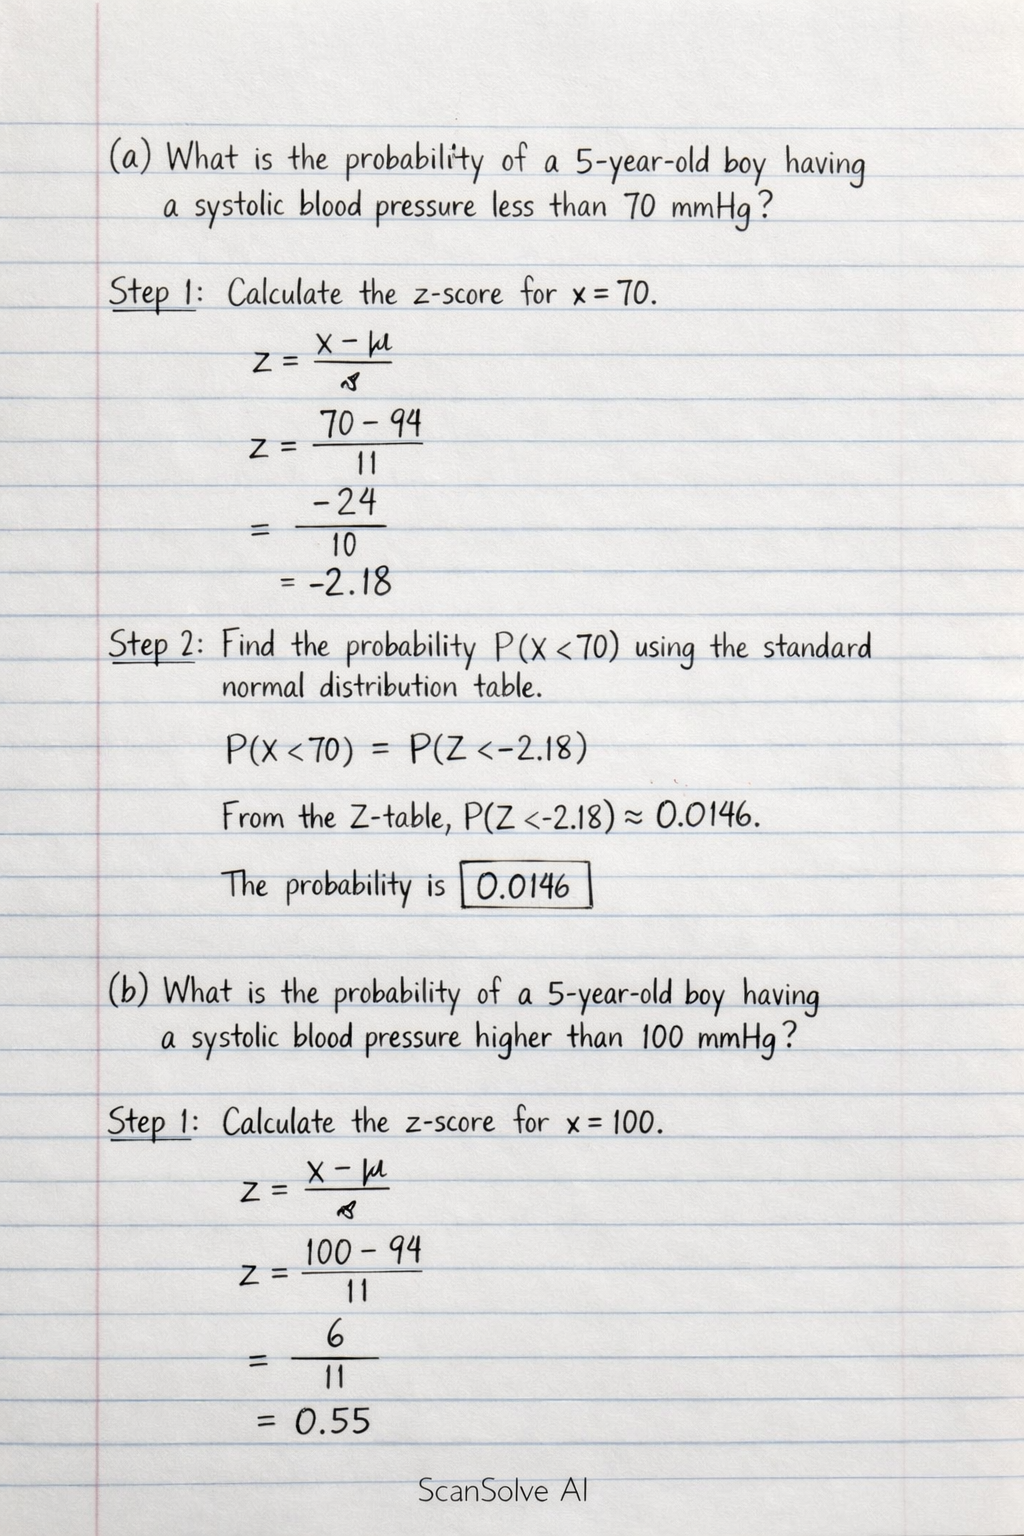 (a) What is the probability of a 5-year-old boy having
a systolic blood pressure less than 70 mmHg?
Step 1: Calculate the z-score for x = 70.
z = (x - μ) /
z = (70 - 94) / 11
= -24 / 10
= -2.18
Step 2: Find the probability P(X < 70) using the standard
normal distribution table.
P(X < 70) = P(Z < -2.18)
From the Z-table, P(Z < -2.18) ≈ 0.0146.
The probability is 0.0146
(b) What is the probability of a 5-year-old boy having
a systolic blood pressure higher than 100 mmHg?
Step 1: Calculate the z-score for x = 100.
z = (x - μ) /
z = (100 - 94) / 11
= 6 / 11
= 0.55
ScanSolve AI